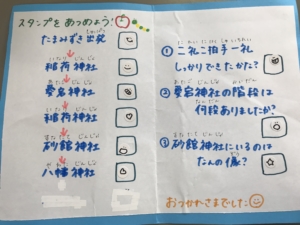 スタンプをあつめよう！
たまみずき出発
稲荷神社
愛宕神社
稲荷神社
砂館神社
八幡神社
① 二礼二拍手一礼
しっかりできたかな？
② 愛宕神社の階段は
何段ありましたか？
③ 砂館神社にいるのは
なんの像？
おつかれさまでした